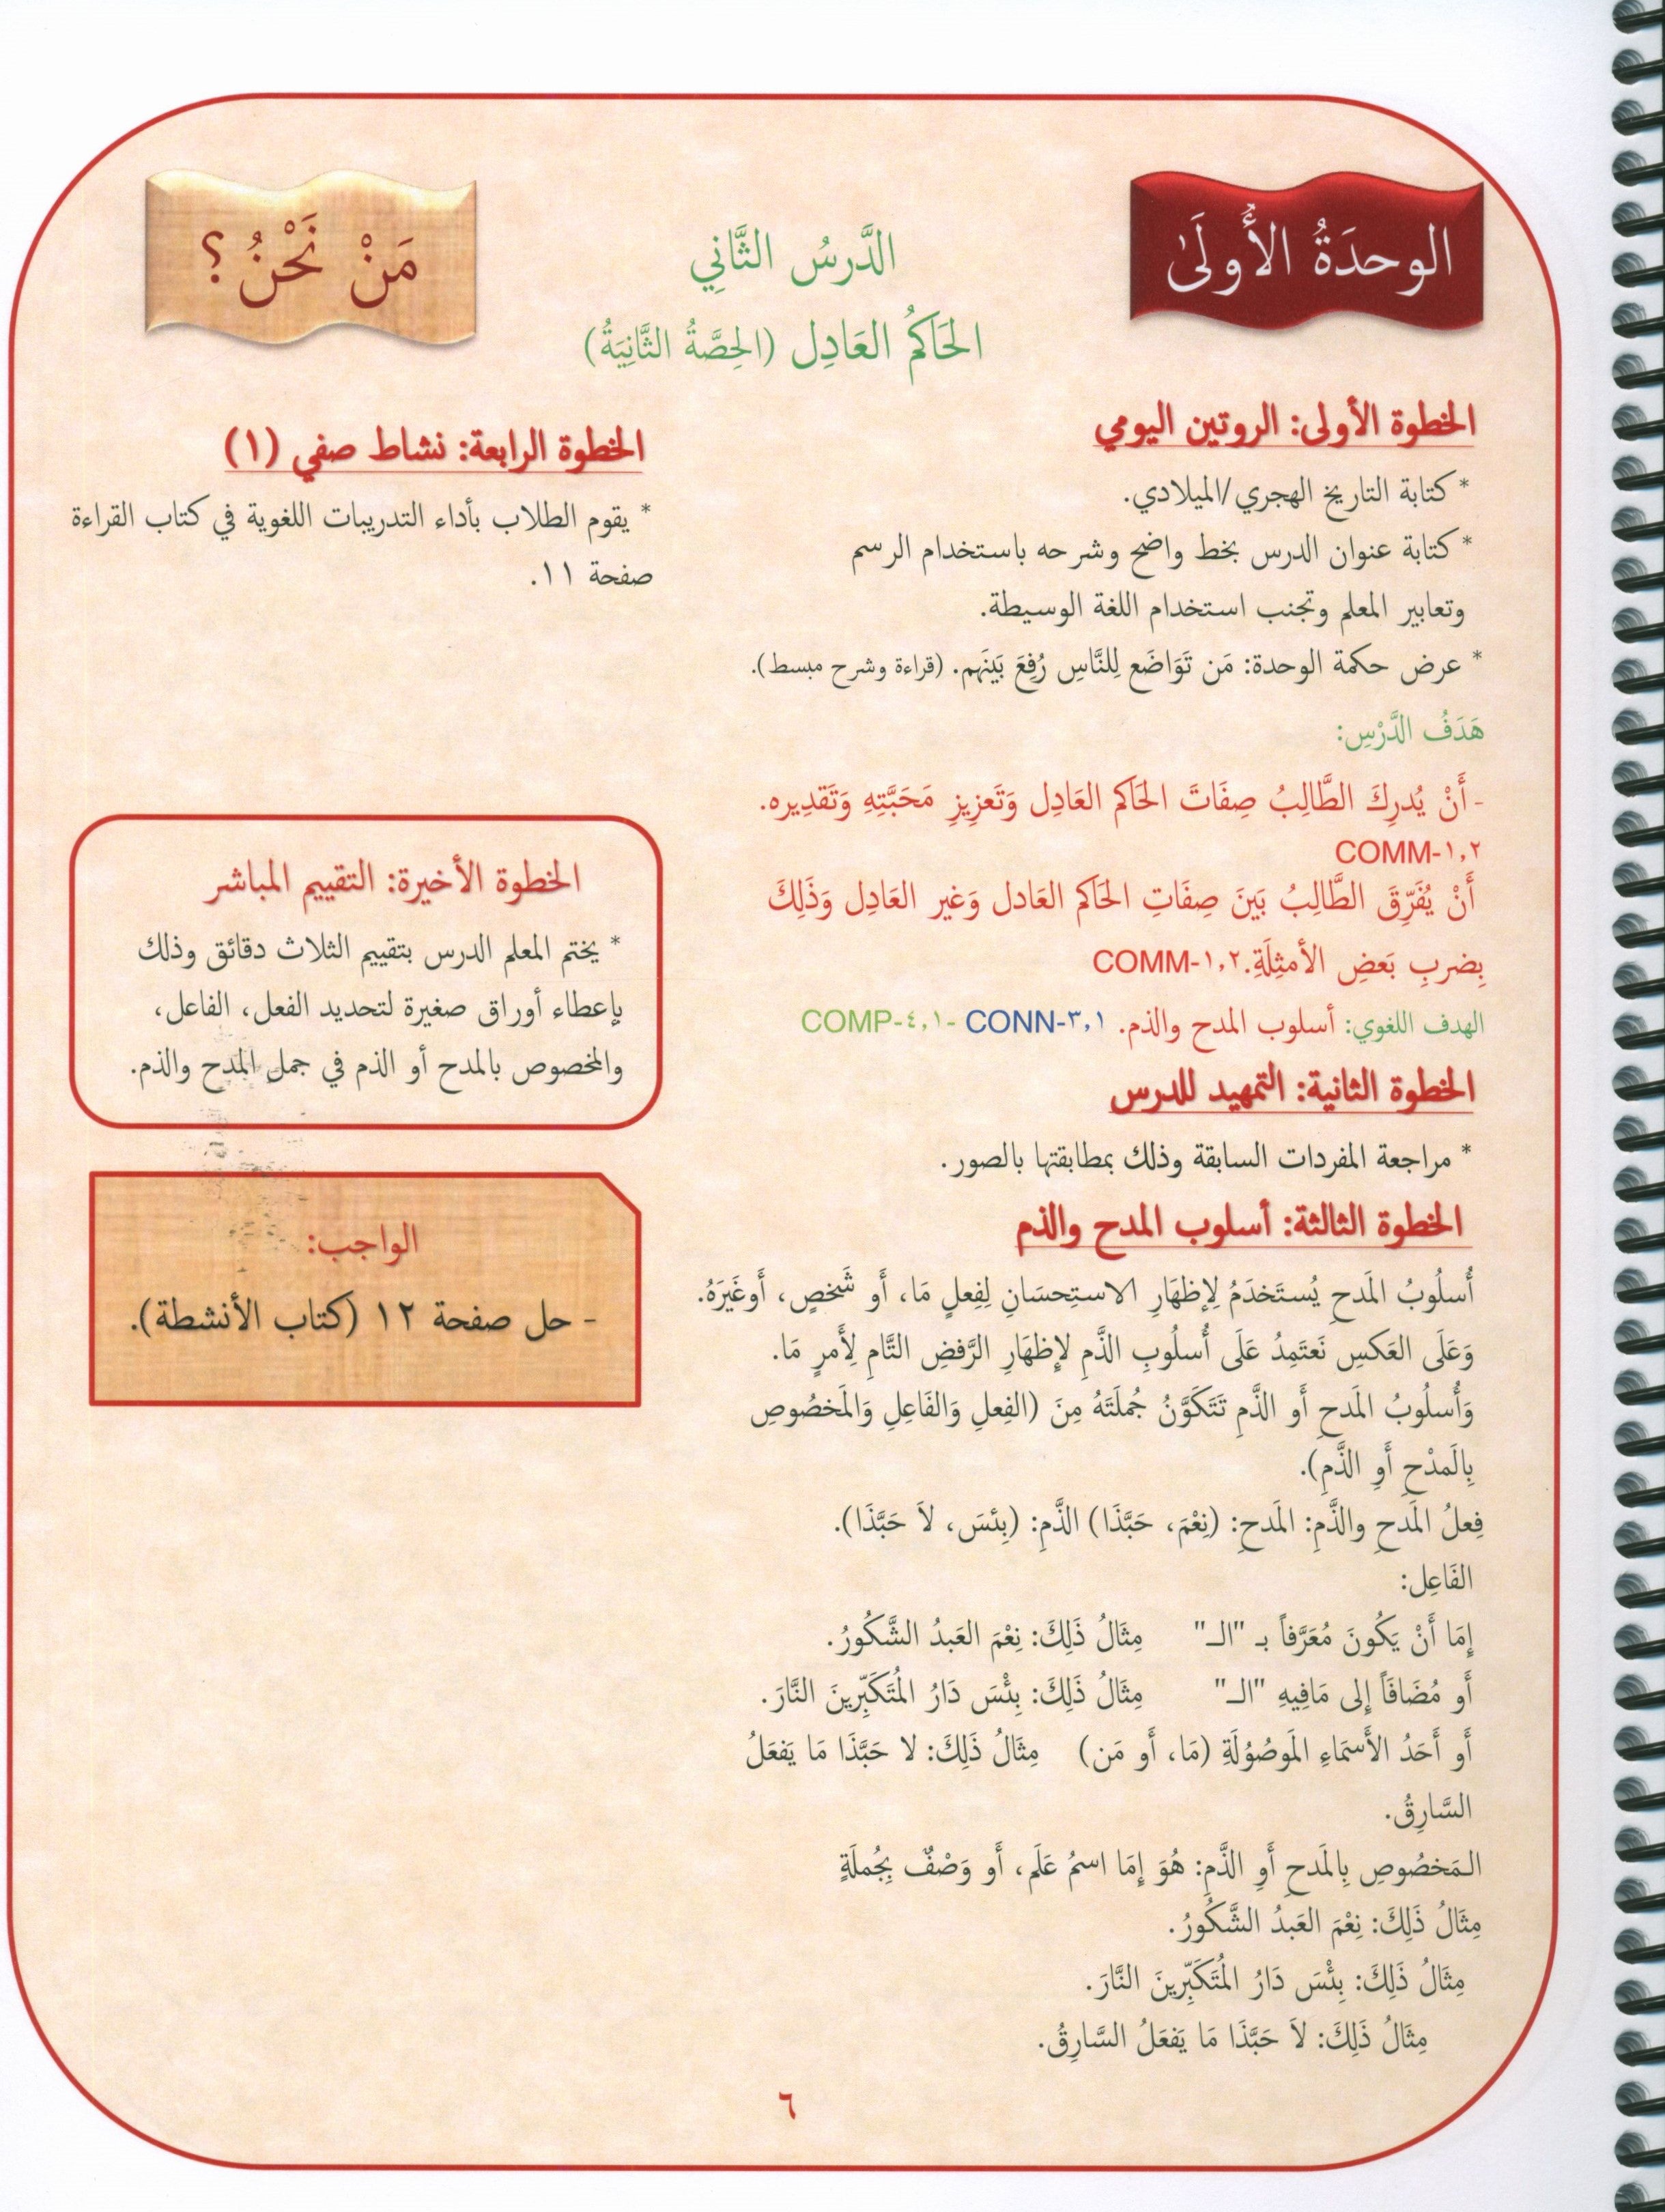 الوحدَةُ الأُولَىٰ
الدَّرسُ الثَّانِي
الحَاكمُ العَادِل (الحِصَّةُ الثَّانِيَةُ)
مَنْ نَحْنُ؟
الخطوة الأولى: الروتين اليومي
* كتابة التاريخ الهجري/الميلادي.
* كتابة عنوان الدرس بخط واضح وشرحه باستخدام الرسم
وتعابير المعلم وتجنب استخدام اللغة الوسيطة.
* عرض حكمة الوحدة: مَن تَوَاضَع لِلنَّاسِ رُفِعَ بَينَهم. (قراءة وشرح مبسط).
هَدَفُ الدَّرْسِ:
- أَنْ يُدرِكَ الطَّالِبُ صِفَاتَ الحَاكم العَادِل وَتَعزِيزِ مَحَبَّتِهِ وَتَقدِيره.
COMM-١,٢
أَنْ يُفَرِّقَ الطَّالِبُ بَينَ صِفَاتِ الحَاكم العَادل وَغير العَادِل وَذَلِكَ
بِضربِ بَعضِ الأمثِلَةِ.COMM-١,٢
الهدف اللغوي: أسلوب المدح والذم. CONN-٣,١ -COMP-٤,١
الخطوة الثانية: التمهيد للدرس
* مراجعة المفردات السابقة وذلك بمطابقتها بالصور.
الخطوة الثالثة: أسلوب المدح والذم
أُسلُوبُ المَدحِ يُستَخدَمُ لِإظهَارِ الاستِحسَانِ لِفِعلٍ مَا، أَو شَخصٍ، أَوغَيَرَهُ.
وَعَلَى العَكسِ نَعتَمِدُ عَلَى أُسلُوبِ الذَّمِ لإِظهَارِ الرَّفضِ التَّامِ لِأَمرٍ مَا.
وَأُسلُوبُ المَدحِ أَو الذَّمِ تَتَكَوَّنُ جُملَتَهُ مِنَ (الفِعلِ وَالفَاعِلِ وَالمَخصُوصِ
بِالَمدْحِ أَوِ الذَّمِ).
فِعلُ المَدحِ والذَّمِ: المَدحِ: (نِعْمَ، حَبَّذَا) الذَّمِ: (بِئسَ، لاَ حَبَّذَا).
الفَاعِل:
إِمَا أَنْ يَكُونَ مُعَرَّفاً بـ "الـ" مِثَالُ ذَلِكَ: نِعْمَ العَبدُ الشَّكُورُ.
أَو مُضَافَاً إِلى مَافِيهِ "الـ" مِثَالُ ذَلِكَ: بِئْسَ دَارُ المُتَكَبِّرِينَ النَّارَ.
أَو أَحَدُ الأَسمَاءِ المَوصُوُلَةِ (مَا، أَو مَن) مِثَالُ ذَلِكَ: لا حَبَّذَا مَا يَفعَلُ
السَّارِقُ.
المَخصُوصِ بِالمَدحِ أَوِ الذَّمِ: هُوَ إِمَا اسمُ عَلَم، أَو وَصْفٌ بِجُملَةٍ
مِثَالُ ذَلِكَ: نِعْمَ العَبدُ الشَّكُورُ.
مِثَالُ ذَلِكَ: بِئْسَ دَارُ المُتَكَبِّرِينَ النَّارَ.
مِثَالُ ذَلِكَ: لاَ حَبَّذَا مَا يَفعَلُ السَّارِقُ.
الخطوة الرابعة: نشاط صفي (١)
* يقوم الطلاب بأداء التدريبات اللغوية في كتاب القراءة
صفحة ١١.
الخطوة الأخيرة: التقييم المباشر
* يختم المعلم الدرس بتقييم الثلاث دقائق وذلك
بإعطاء أوراق صغيرة لتحديد الفعل، الفاعل،
والمخصوص بالمدح أو الذم في جمل المدح والذم.
الواجب:
- حل صفحة ١٢ (كتاب الأنشطة).
٦